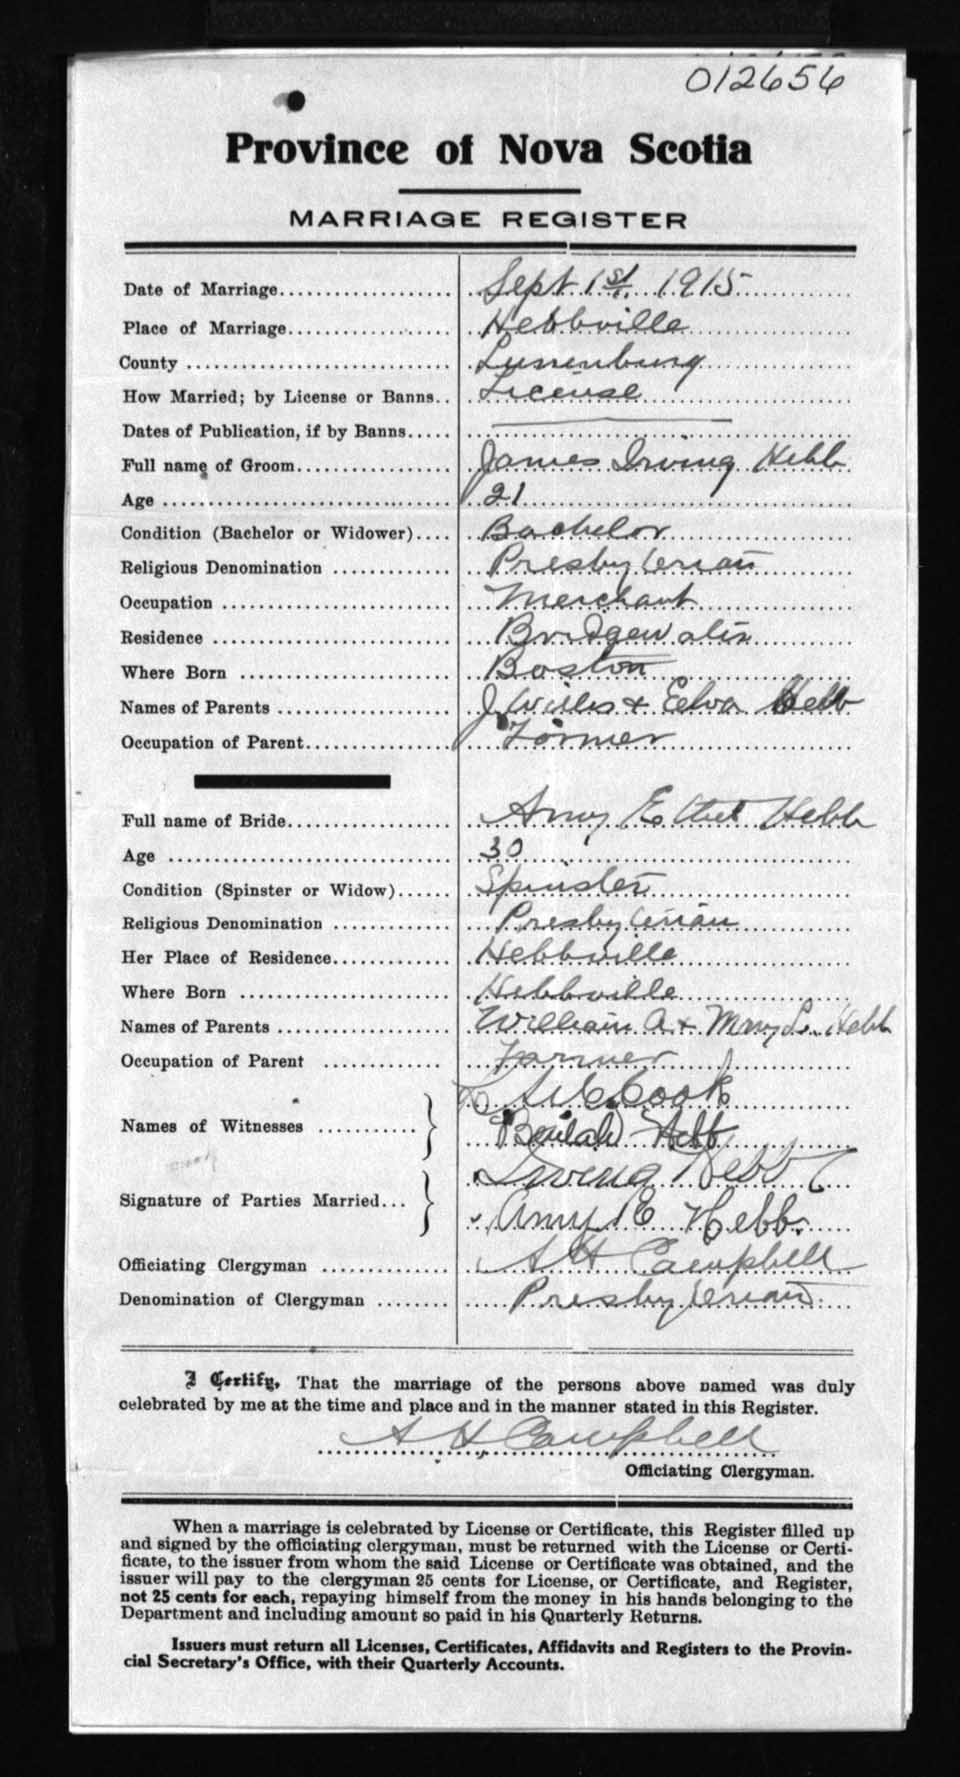 012656
Province of Nova Scotia
MARRIAGE REGISTER
Date of Marriage Sept 1st. 1915
Place of Marriage Hebbville
County Lunenburg
How Married; by License or Banns License
Dates of Publication, if by Banns
Full name of Groom James Irving Hebb
Age 21
Condition (Bachelor or Widower) Bachelor
Religious Denomination Presbyterian
Occupation Merchant
Residence Bridgewater
Where Born Boston
Names of Parents J & Hebb
Occupation of Parent Farmer
Full name of Bride Amy Ethel Hebb
Age 30
Condition (Spinster or Widow) Spinster
Religious Denomination Presbyterian
Her Place of Residence Hebbville
Where Born Hebbville
Names of Parents William A & Mary L. Hebb
Occupation of Parent Farmer
Cook
Names of Witnesses
Beulah Hebb
Irving Hebb
Signature of Parties Married
Amy E Hebb.
Officiating Clergyman A H Campbell
Denomination of Clergyman Presbyterian
I Certify, That the marriage of the persons above named was duly
celebrated by me at the time and place and in the manner stated in this Register.
A H Campbell
Officiating Clergyman.
When a marriage is celebrated by License or Certificate, this Register filled up
and signed by the officiating clergyman, must be returned with the License or Certi-
ficate, to the issuer from whom the said License or Certificate was obtained, and the
issuer will pay to the clergyman 25 cents for License, or Certificate, and Register,
not 25 cents for each, repaying himself from the money in his hands belonging to the
Department and including amount so paid in his Quarterly Returns.
Issuers must return all Licenses, Certificates, Affidavits and Registers to the Provin-
cial Secretary's Office, with their Quarterly Accounts.